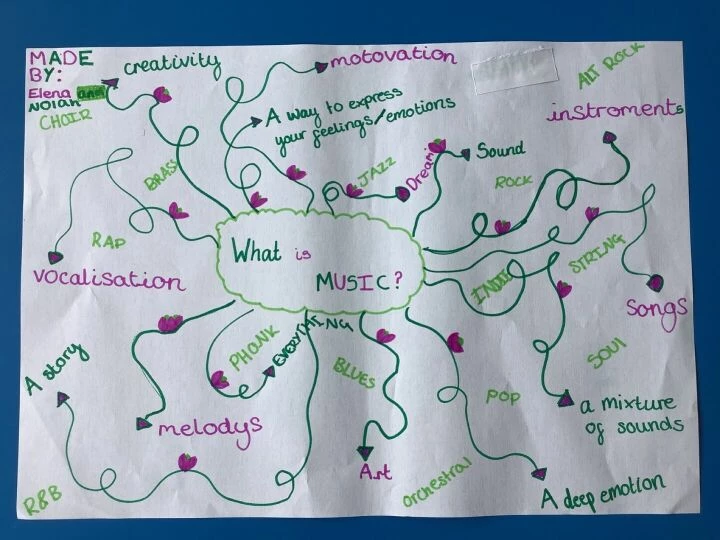 MADE
BY:
Elena and
NOlan
CHOIR
creativity
motovation
A way to express
your feelings/emotions
ALT ROCK
instroments
BRASS
JAZZ
Dreams
Sound
ROCK
RAP
vocalisation
What is
MUSIC?
INDIE
STRING
songs
A story
melodys
PHONK
EVERYTHING
BLUES
SOUl
POP
a mixture
of sounds
Art
orchestral
A deep emotion
R&B